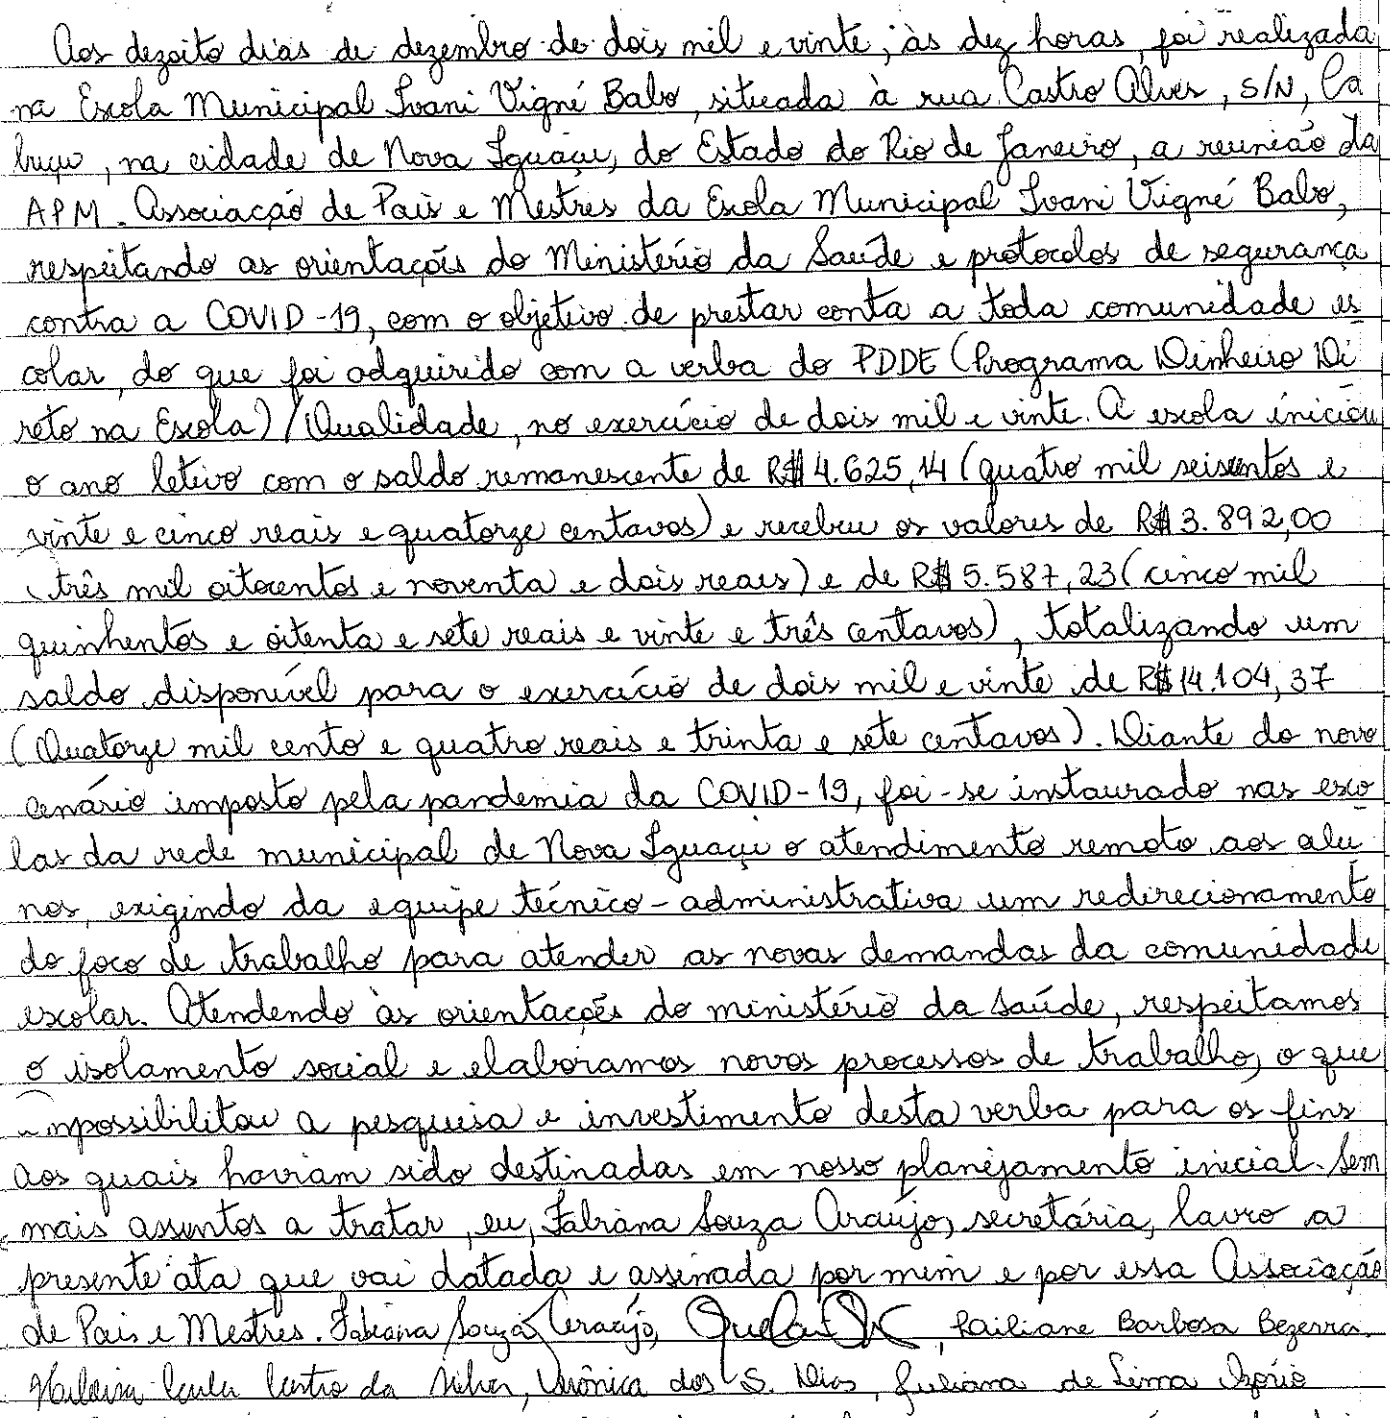 Aos dezoito dias de dezembro de dois mil e vinte, às dez horas, foi realizada
na Escola Municipal Ivani Vigné Babo, situada à rua Castro Alves, S/N, Ca
buçu, na cidade de Nova Iguaçu, do Estado do Rio de Janeiro, a reunião da
APM. Associação de Pais e Mestres da Escola Municipal Ivani Vigné Babo,
respeitando as orientações do Ministério da Saúde e protocolos de segurança
contra a COVID-19, com o objetivo de prestar conta a toda comunidade es
colar, do que foi adquirido com a verba do PDDE (Programa Dinheiro Di
reto na Escola) / Qualidade, no exercício de dois mil e vinte. A escola iniciou
o ano letivo com o saldo remanescente de R$ 4.625,14 (quatro mil seiscentos e
vinte e cinco reais e quatorze centavos) e recebeu os valores de R$ 3.892,00
(três mil oitocentos e noventa e dois reais) e de R$ 5.587,23 (cinco mil
quinhentos e oitenta e sete reais e vinte e três centavos), totalizando um
saldo disponível para o exercício de dois mil e vinte de R$ 14.104,37
(Quatorze mil cento e quatro reais e trinta e sete centavos). Diante do novo
cenário imposto pela pandemia da COVID-19, foi-se instaurado nas esco
las da rede municipal de Nova Iguaçu o atendimento remoto aos alu
nos, exigindo da equipe técnico-administrativa um redirecionamento
do foco de trabalho para atender as novas demandas da comunidade
escolar. Atendendo às orientações do ministério da Saúde, respeitamos
o isolamento social e elaboramos novos processos de trabalho, o que
impossibilitou a pesquisa e investimento desta verba para os fins
aos quais haviam sido destinadas em nosso planejamento inicial. Sem
mais assuntos a tratar, eu, Fabiana Souza Araújo, secretária, lavro a
presente ata que vai datada e assinada por mim e por essa Associação
de Pais e Mestres. Fabiana Souza Araújo, Railiane Barbosa Bezerra.
da Silva, Verônica dos S. Dias, Juliana de Lima Ozório